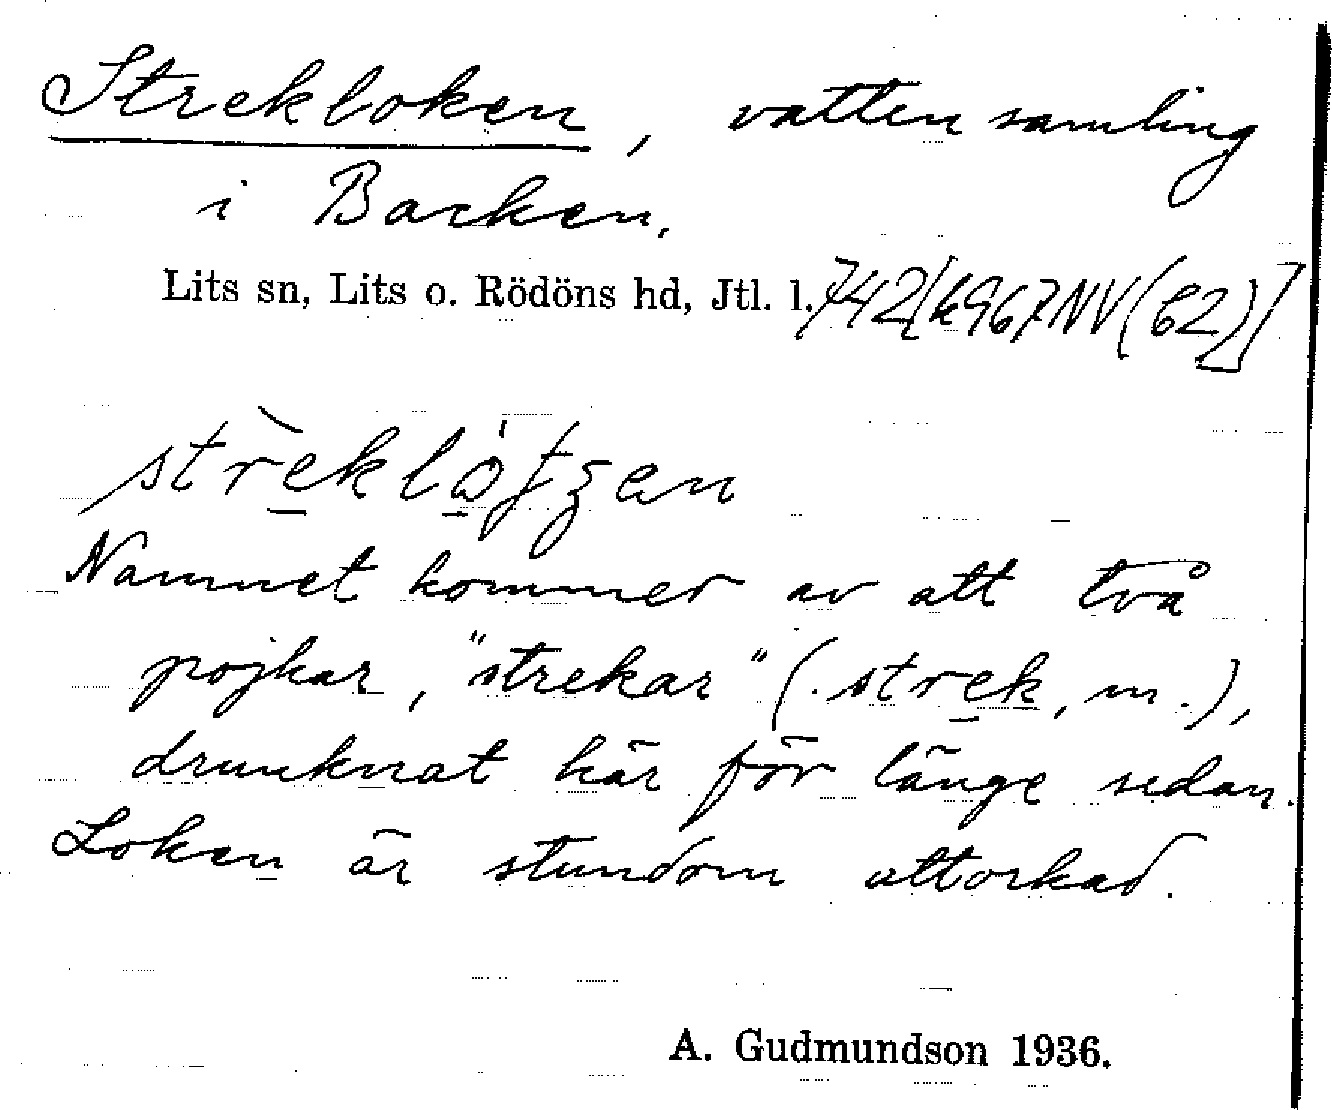 Strekloken, vattensamling
i Backen.
Lits sn, Lits o. Rödöns hd, Jtl. l. 742[k967NV(62)]
Namnet kommer av att två
pojkar, "strekar" (. strek, m.),
drunknat här för länge sedan.
Loken är stundom uttorkad.
A. Gudmundson 1936.